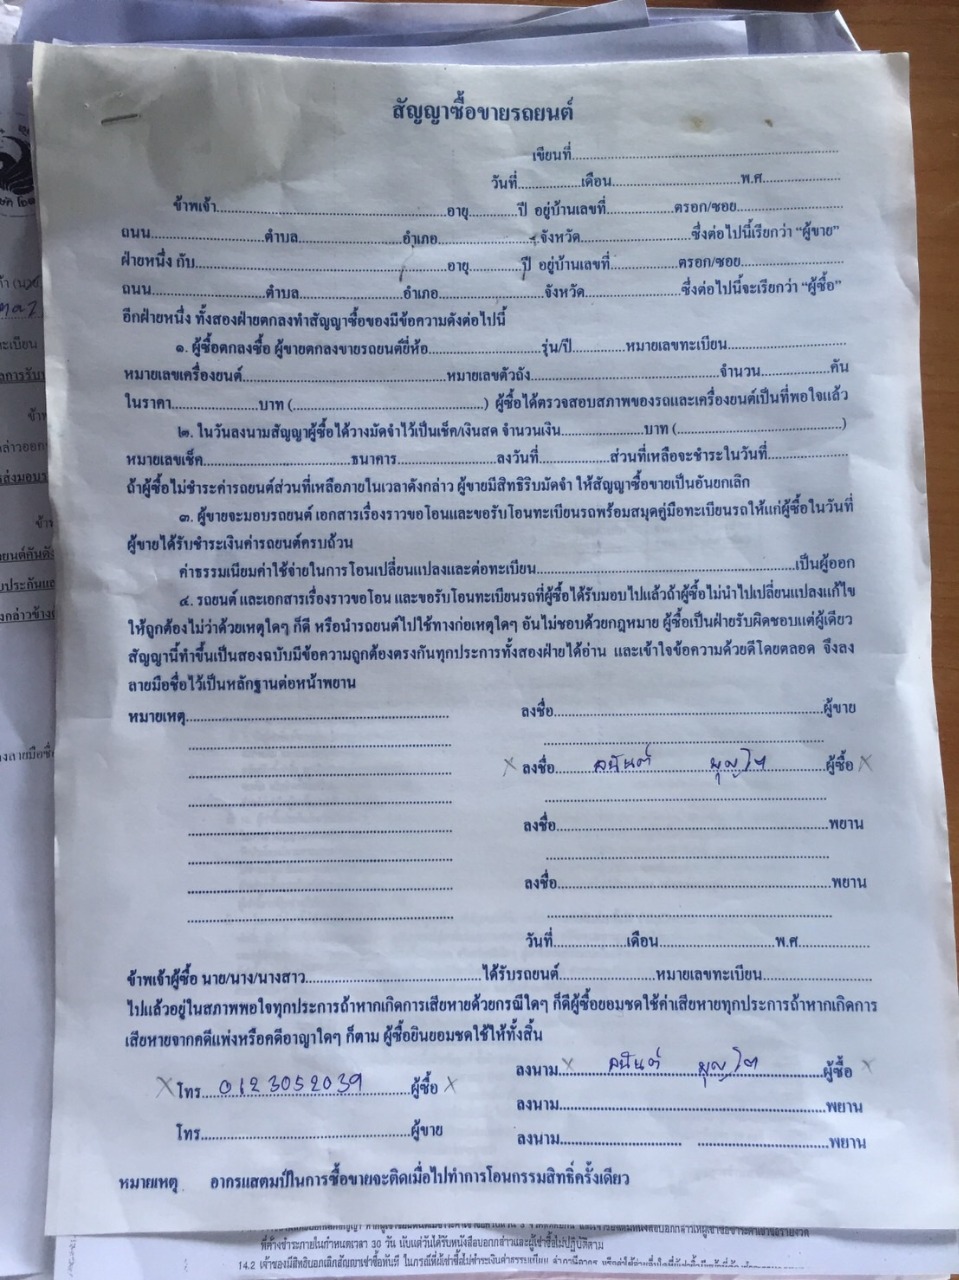 สัญญาซื้อขายรถยนต์
เขียนที่........................................
วันที่................เดือน................................พ.ศ....................
ข้าพเจ้า............................................................อายุ............ปี อยู่บ้านเลขที่..................ตรอก/ซอย...........................
ถนน..............................ตำบล...........................อำเภอ...........................จังหวัด.............................ซึ่งต่อไปนี้เรียกว่า “ผู้ขาย”
ฝ่ายหนึ่ง กับ.................................................................อายุ..............ปี อยู่บ้านเลขที่..................ตรอก/ซอย...........................
ถนน..............................ตำบล...........................อำเภอ............................จังหวัด........................ซึ่งต่อไปนี้จะเรียกว่า “ผู้ซื้อ”
อีกฝ่ายหนึ่ง ทั้งสองฝ่ายตกลงทำสัญญาซื้อของมีข้อความดังต่อไปนี้
๑. ผู้ซื้อตกลงซื้อ ผู้ขายตกลงขายรถยนต์ยี่ห้อ..............................รุ่น/ปี..............หมายเลขทะเบียน...............................
หมายเลขเครื่องยนต์.....................................................หมายเลขตัวถัง.................................................จำนวน..................คัน
ในราคา.......................บาท (..................................................) ผู้ซื้อได้ตรวจสอบสภาพของรถและเครื่องยนต์เป็นที่พอใจแล้ว
๒. ในวันลงนามสัญญาผู้ซื้อได้วางมัดจำไว้เป็นเช็ค/เงินสด จำนวนเงิน.....................บาท (...........................................)
หมายเลขเช็ค..................................ธนาคาร..........................ลงวันที่..................ส่วนที่เหลือจะชำระในวันที่.....................
ถ้าผู้ซื้อไม่ชำระค่ารถยนต์ส่วนที่เหลือภายในเวลาดังกล่าว ผู้ขายมีสิทธิริบมัดจำ ให้สัญญาซื้อขายเป็นอันยกเลิก
๓. ผู้ขายจะมอบรถยนต์ เอกสารเรื่องราวขอโอนและขอรับโอนทะเบียนรถพร้อมสมุดคู่มือทะเบียนรถให้แก่ผู้ซื้อในวันที่
ผู้ขายได้รับชำระเงินค่ารถยนต์ครบถ้วน
ค่าธรรมเนียมค่าใช้จ่ายในการโอนเปลี่ยนแปลงและต่อทะเบียน...................................................................เป็นผู้ออก
๔. รถยนต์ และเอกสารเรื่องราวขอโอน และขอรับโอนทะเบียนรถที่ผู้ซื้อได้รับมอบไปแล้วถ้าผู้ซื้อไม่นำไปเปลี่ยนแปลงแก้ไข
ให้ถูกต้องไม่ว่าด้วยเหตุใดๆ ก็ดี หรือนำรถยนต์ไปใช้ทางก่อเหตุใดๆ อันไม่ชอบด้วยกฎหมาย ผู้ซื้อเป็นฝ่ายรับผิดชอบแต่ผู้เดียว
สัญญานี้ทำขึ้นเป็นสองฉบับมีข้อความถูกต้องตรงกันทุกประการทั้งสองฝ่ายได้อ่าน และเข้าใจข้อความด้วยดีโดยตลอด จึงลง
ลายมือชื่อไว้เป็นหลักฐานต่อหน้าพยาน
หมายเหตุ.................................................................... ลงชื่อ......................................................................ผู้ขาย
× ลงชื่อ..........อนันต์ บุญโต..........ผู้ซื้อ ×
ลงชื่อ......................................................................พยาน
ลงชื่อ......................................................................พยาน
วันที่..................เดือน..............................พ.ศ.........................
ข้าพเจ้าผู้ซื้อ นาย/นาง/นางสาว..............................................ได้รับรถยนต์.........................หมายเลขทะเบียน............................
ไปแล้วอยู่ในสภาพพอใจทุกประการถ้าหากเกิดการเสียหายด้วยกรณีใดๆ ก็ดีผู้ซื้อยอมชดใช้ค่าเสียหายทุกประการถ้าหากเกิดการ
เสียหายจากคดีแพ่งหรือคดีอาญาใดๆ ก็ตาม ผู้ซื้อยินยอมชดใช้ให้ทั้งสิ้น
ลงนาม ×..........อนันต์ บุญโต..........ผู้ซื้อ ×
× โทร..0123052039..........ผู้ซื้อ ×
ลงนาม....................................................................พยาน
โทร......................................................ผู้ขาย
ลงนาม............................... ..................................พยาน
หมายเหตุ อากรแสตมป์ในการซื้อขายจะติดเมื่อไปทำการโอนกรรมสิทธิ์ครั้งเดียว
ที่ค้างชำระภายในกำหนดเวลา 30 วัน นับแต่วันได้รับหนังสือบอกกล่าวและผู้เช่าซื้อไม่ปฏิบัติตาม
14.2 เจ้าของมีสิทธิบอกเลิกสัญญาเช่าซื้อทันที